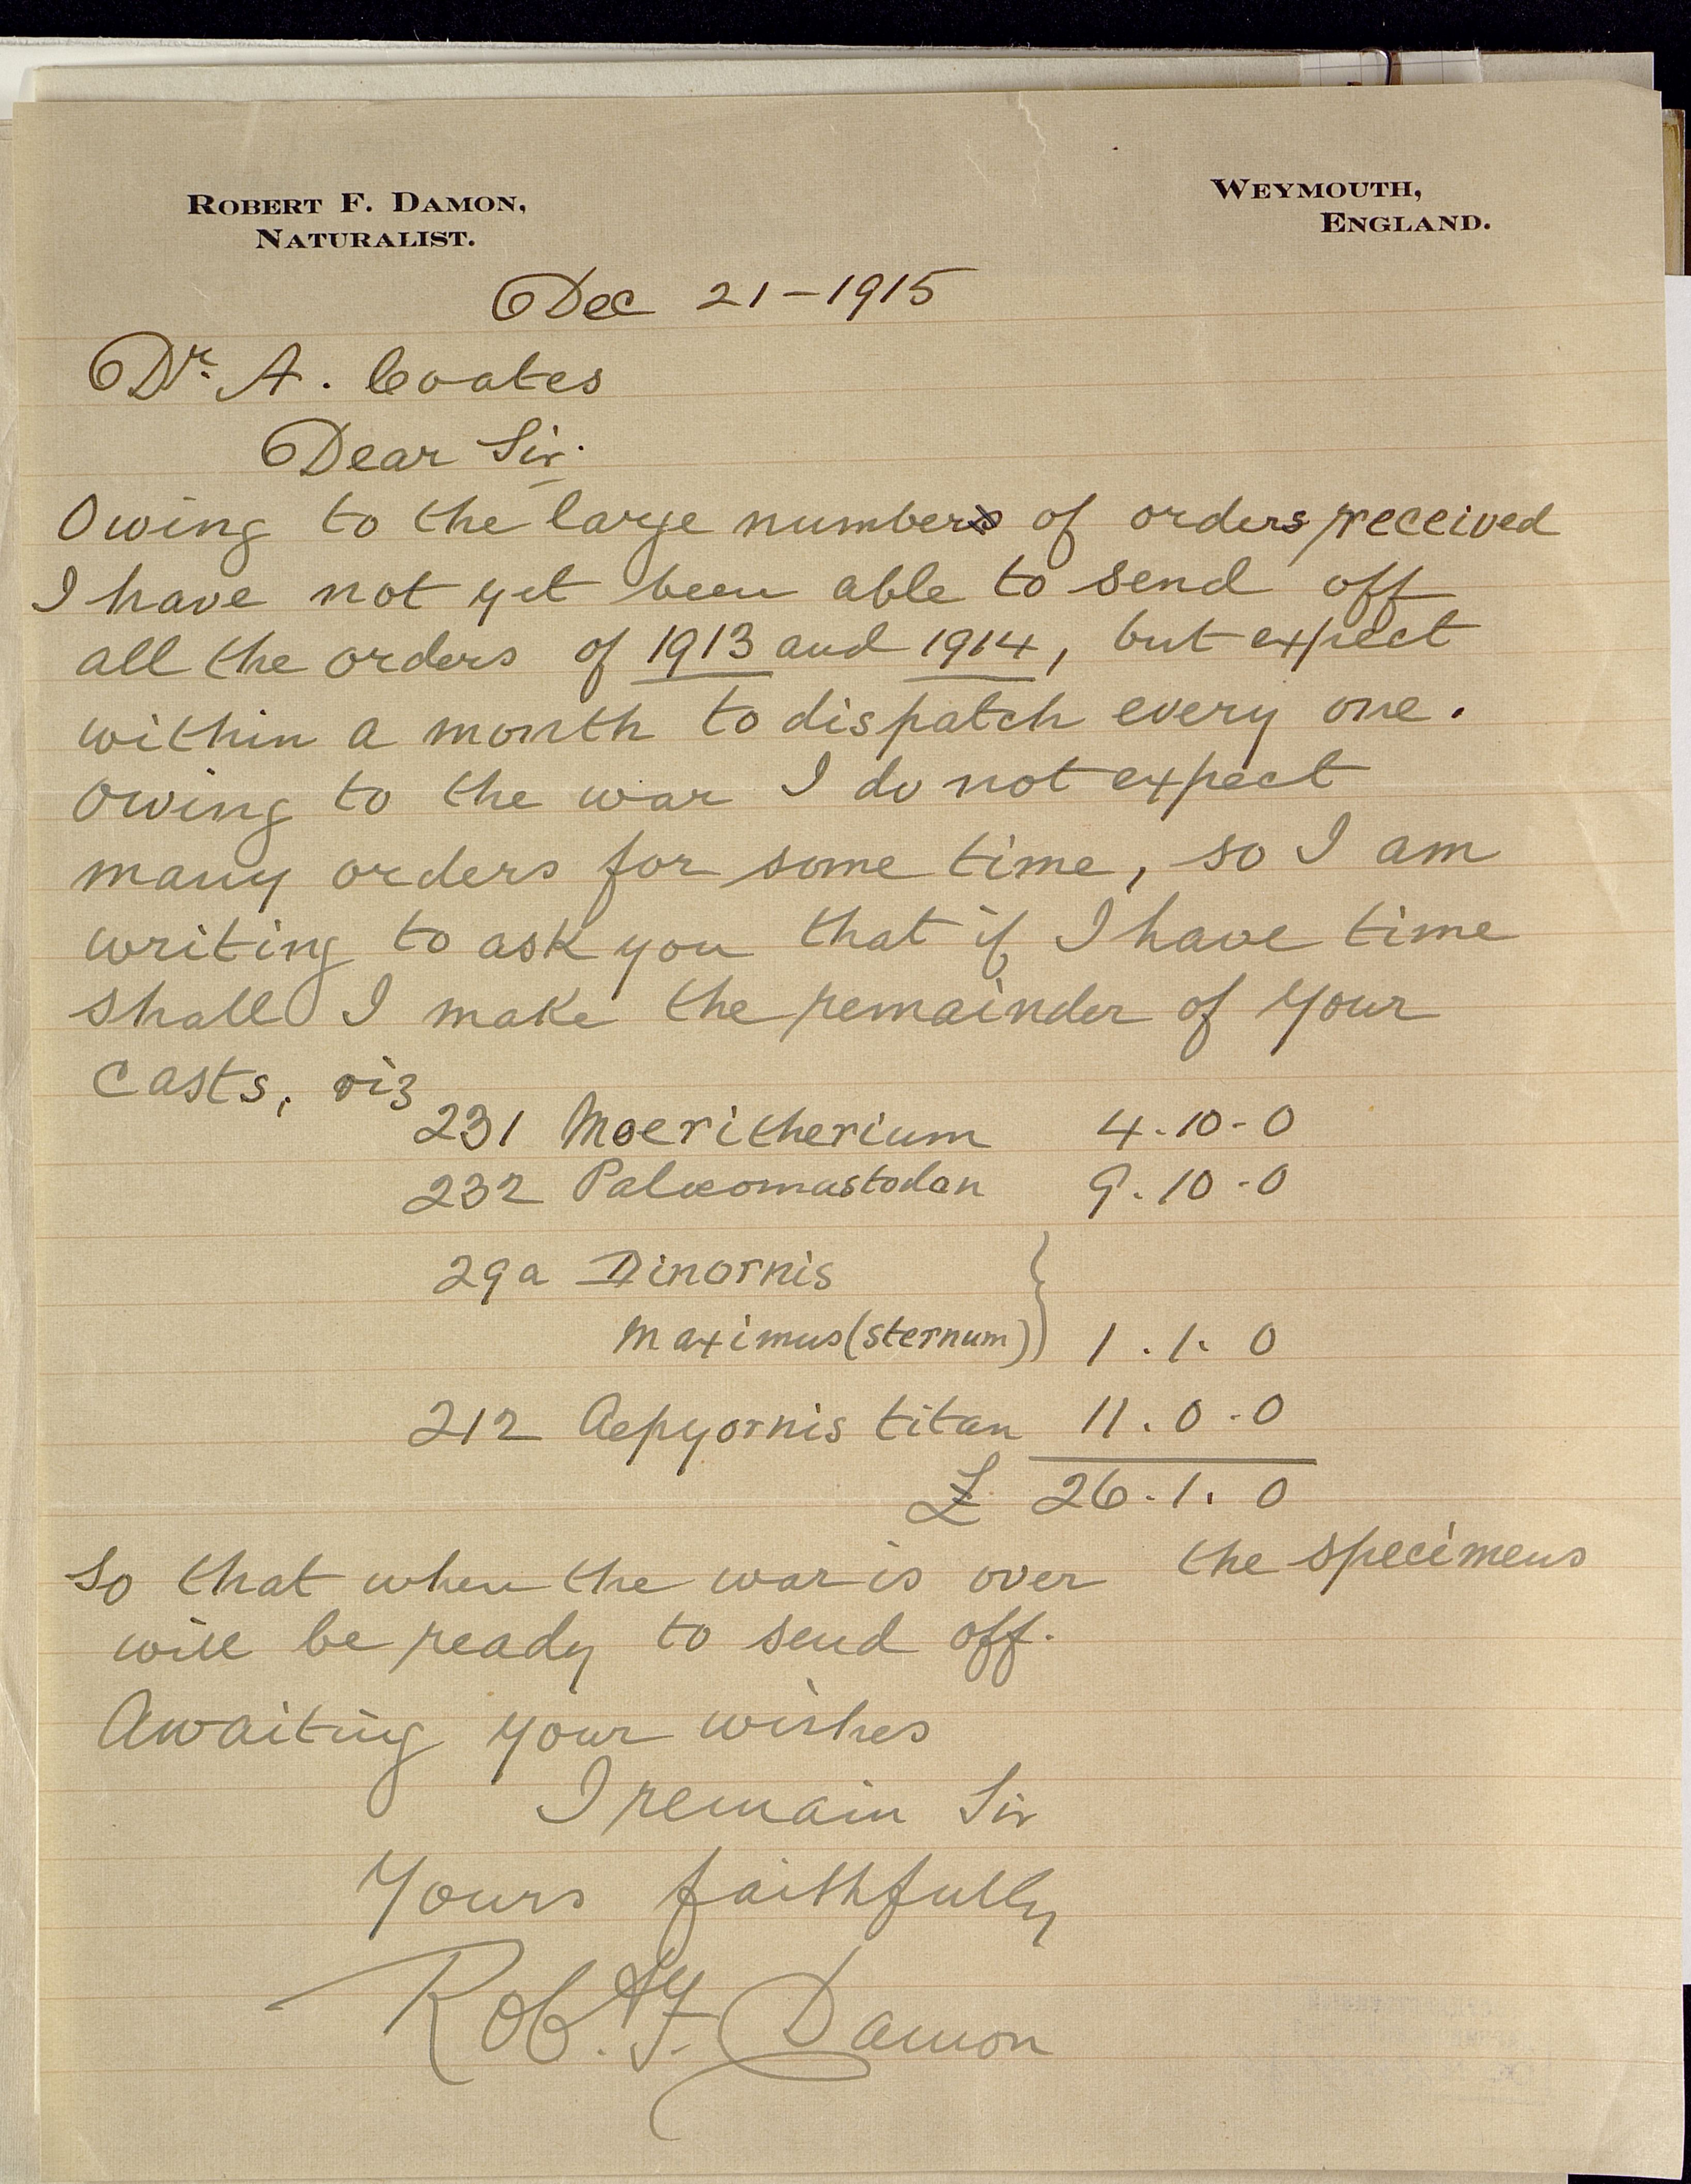 ROBERT F. DAMON,
NATURALIST.
WEYMOUTH,
ENGLAND.
Dec 21-1915
Dr. A. Coates
Dear Sir.
Owing to the large number of orders received
I have not yet been able to send off
all the orders of 1913 and 1914, but expect
within a month to dispatch every one.
Owing to the war I do not expect
many orders for some time, so I am
writing to ask you that if I have time
shall I make the remainder of your
casts, viz
231 Moeritherium 4.10-0
232 Palæomastodon 9.10-0
29a Dinornis
maximus (sternum) } 1.1.0
212 Aepyornis titan 11.0.0
£ 26.1.0
So that when the war is over the specimens
will be ready to send off.
Awaiting your wishes
I remain Sir
Yours faithfully
Robt. F. Damon